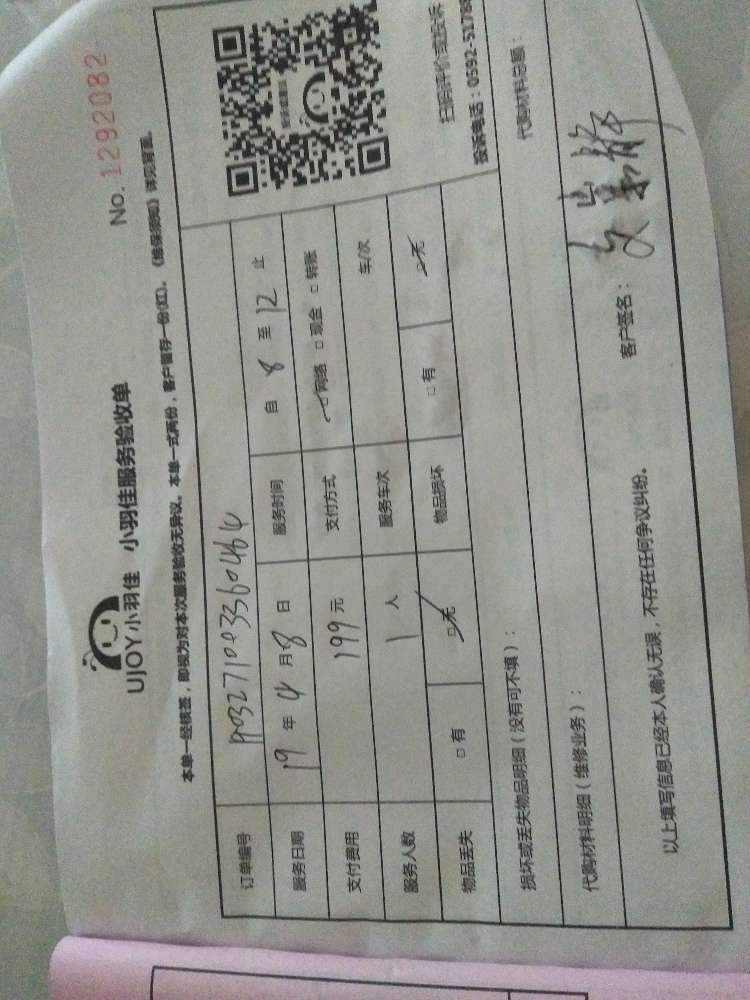 No. 1292082
UJOY小羽佳 小羽佳服务验收单
本单一经核签，即视为对本次服务验收无异议。本单一式两份，客户留存一份(红)。《维保须知》详见背面。
订单编号
服务日期 19 年 4 月 8 日 服务时间 自 8 至 12 止
支付费用 199 元 支付方式 □网络 □现金 □转账
服务人数 1 人 服务车次 车/次
物品丢失 □有 □无 物品损坏 □有 □无
扫码评价或投诉
投诉电话：0592-5178
损坏或丢失物品明细（没有可不填）：
代购材料明细（维修业务）： 代购材料总额：
以上填写信息已经本人确认无误，不存在任何争议纠纷。 客户签名：